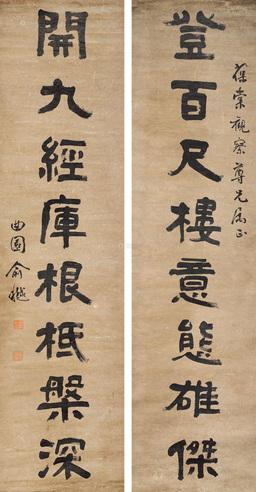 登百尺樓意態雄傑
葆棠觀察尊兄屬正
開九經庫根柢槃深
曲園俞樾